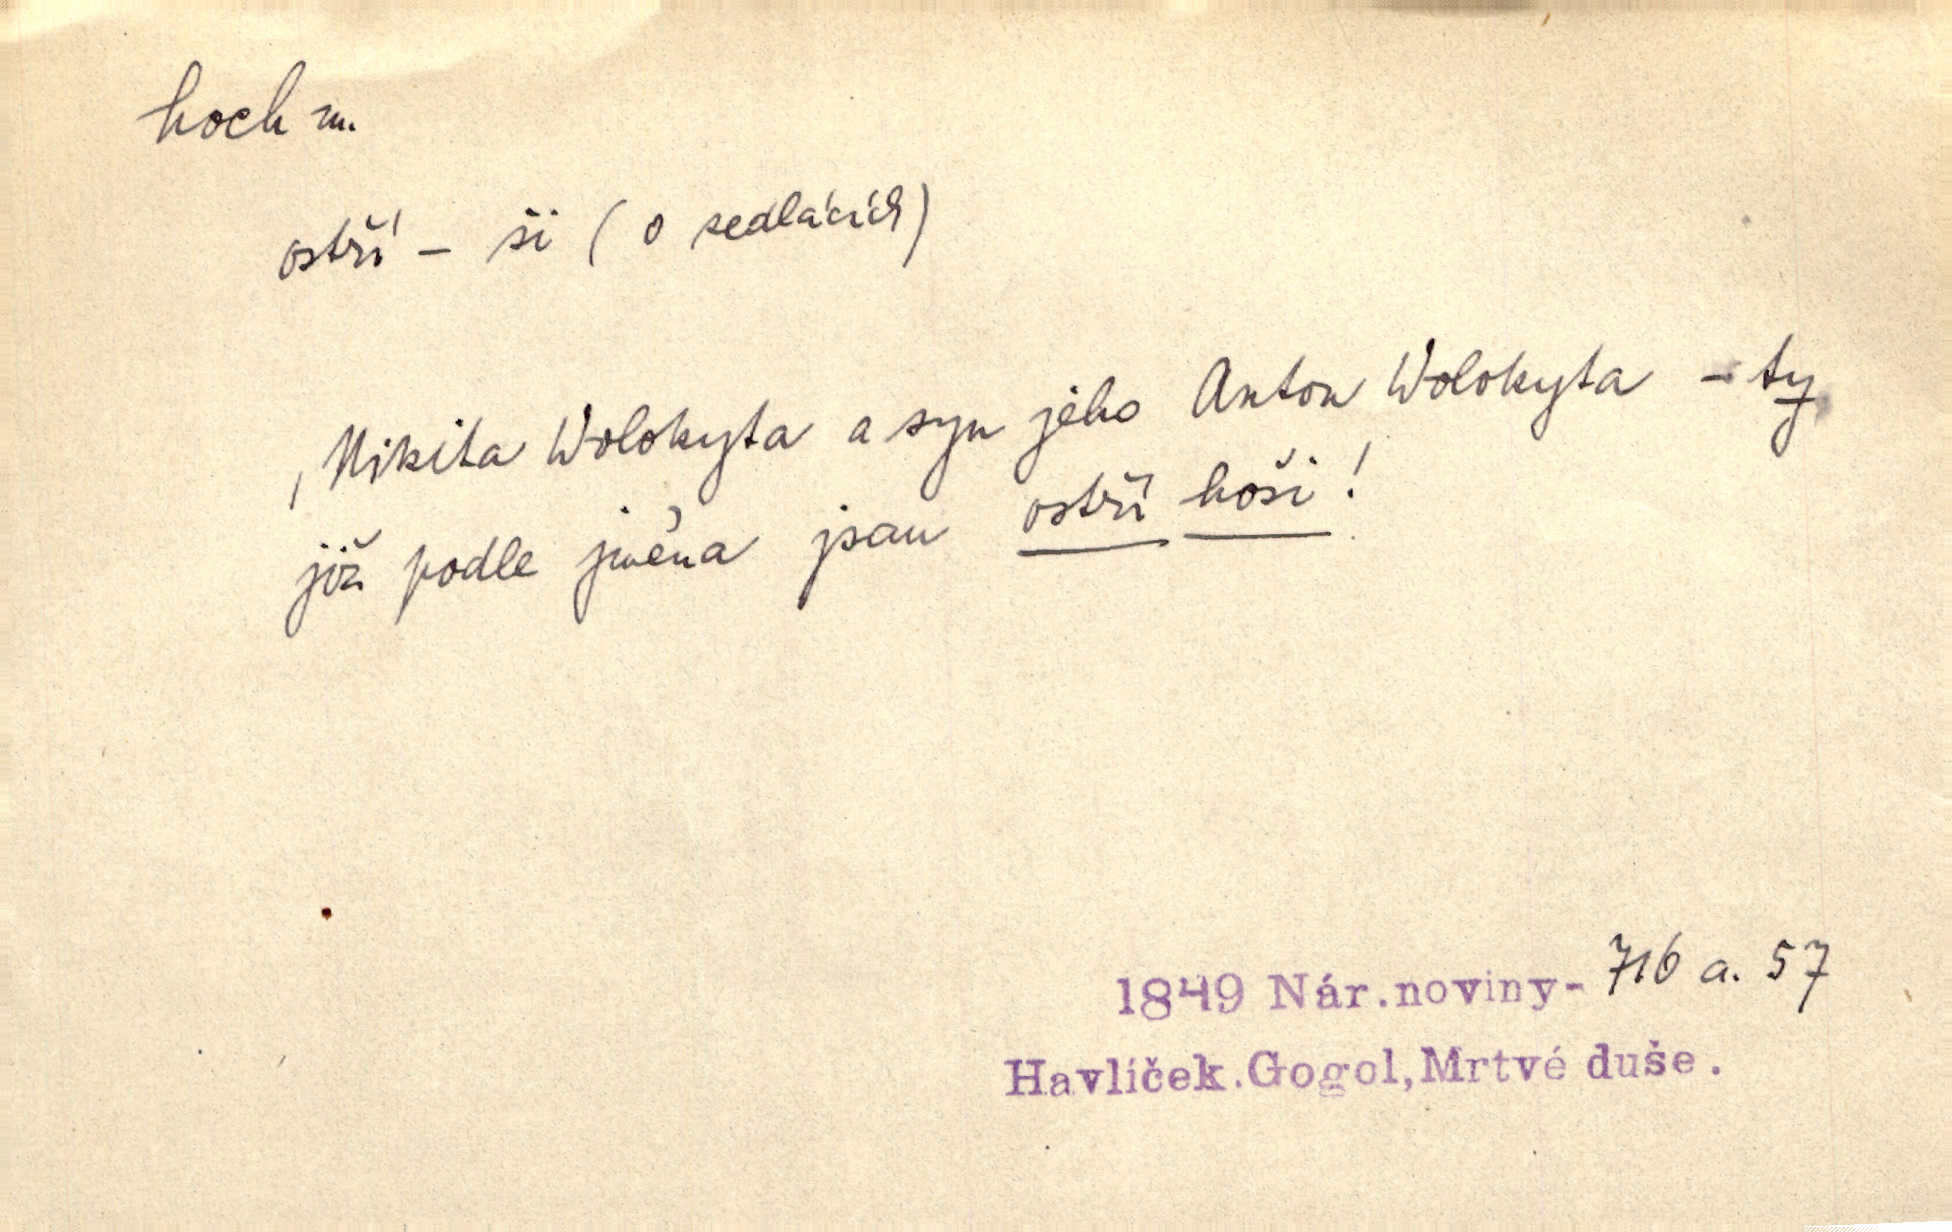 hoch m.
ostří – ši (o sedlácích)
, Nikita Wolokyta a syn jeho Anton Wolokyta – ty
již podle jména jsau ostří hoši!
1849 Nár.noviny- 716 a. 57
Havlíček.Gogol,Mrtvé duše.